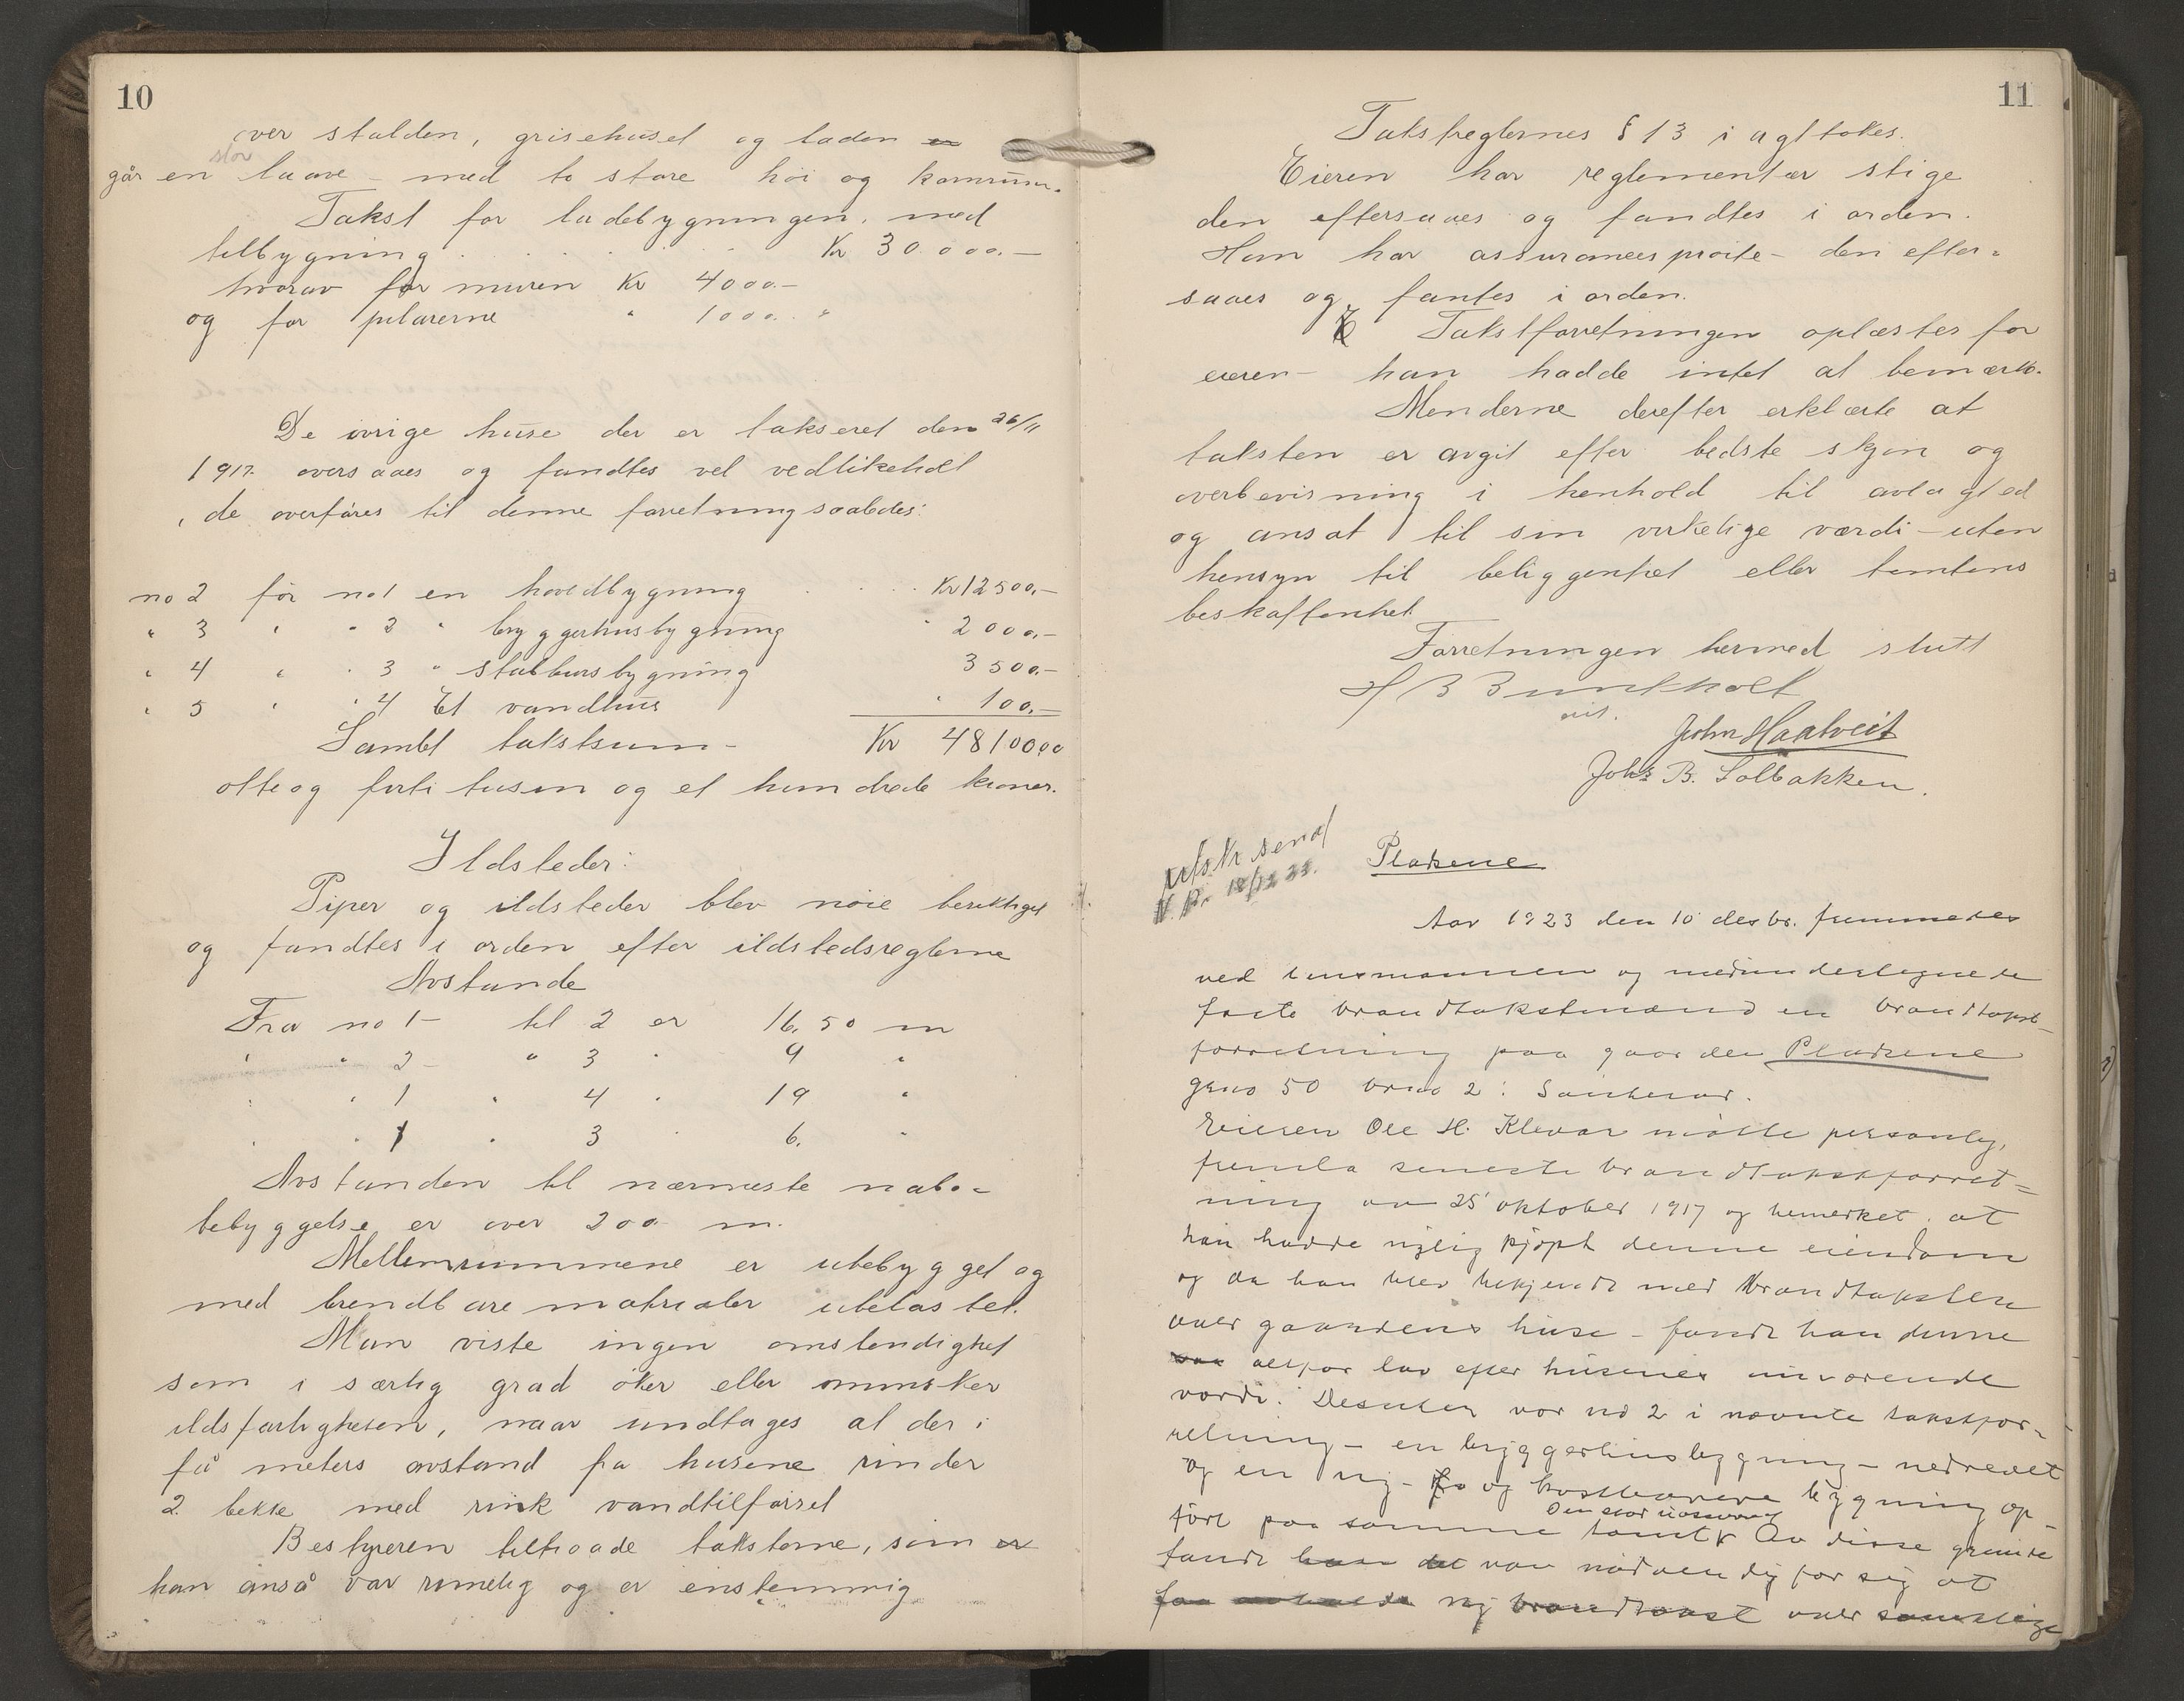 10
over stalden, grisehuset og laden
stor
går en laave - med to store høi og kornrum.
Takst for ladebygningen, med
tilbygning . . . . . . Kr 30.000.-
hvorav for muren Kr 4000.-
og for pilarerne " 1000. "
De øvrige huse der er takseret den 26/11
1917. oversaaes og fandtes vel vedlikeholdt
, de overføres til denne forretning saaledes:
no 2 før no 1 en hovedbygning . . . Kr 12500.-
" 3 " " 2 " bryggerhusbygning " 2000.-
" 4 " " 3 " stabbursbygning 3500.-
" 5 " " 4 Et vandhus " 100.-
Samlet takstsum - Kr 48100.00
otteog førti tusen og et hundrede kroner.
Ildsteder:
Piper og ildsteder blev nøie besiktiget
og fandtes i orden efter ildstedsreglerne
Avstande
Fra no 1 - til 2 er 16.50 m
" " 2 - " 3 " 9 "
" " 1 " 4 " 19 "
" " 1 " 3 " 6. "
Avstanden til nærmeste nabo-
bebyggelse er over 200 m.
Mellemrummene er ubebygget og
med brendbare matrialer ubelastet.
Man viste ingen omstendighet
som i særlig grad øker eller minsker
ildsfarligheten, naar undtages at der i
få meters avstand fra husene rinder
2 bekke med rink vandtilførsel
Bestyreren tiltraade taksterne, som er
han anså var rimelig og er enstemmig
11
Takstreglernes § 13 iagttokes.
Eieren har reglementær stige
den eftersaaes og fandtes i orden.
Han har assurancesprøite - den efter-
saaes og fantes i orden.
Takstforretningen oplæstes for
eieren - han hadde intet at bemærke.
Menderne derefter erklærte at
taksten er avgit efter bedste skjøn og
overbevisning i henhold til avlagt ed
og ansat til sin virkelige værdi - uten
hensyn til beliggenhet eller tomtens
beskaffenhet.
Forretningen hermed slutt
H B Bunkholt
John Haatveit
Johs B. Solbakken.
utskr. send
18/12 23.
Pladsene
Aar 1923 den 10 desbr. fremmedes
ved lensmannen og medundertegnede
faste brandtakstmænd en brandtakst-
forretning paa gaarden Pladsene
gno 50 brno 2 : Sauherad.
Eieren Ole H. Klevar møtte personlig,
fremla seneste brandtakstforret-
ning av 25 oktober 1917 og bemerket at
han hadde nylig kjøpt denne eiendom
og da han blev bekjendt med brandtaksten
over gaardens huse - fandt han denne
altfor lav efter husenes nuværende
værdi. Desuten var no 2 i nævnte takstfor-
retning - en bryggerhusbygning - nedrevet
og en ny - og kostbarere bygning op-
ført paa samme tomt. Av disse grunde
fandt han det var nødvendig for sig at
faa avholde ny brandtakst over samtlige